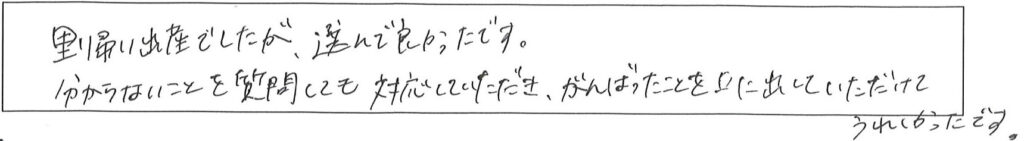 里帰り出産でしたが、選んで良かったです。
分からないことを質問しても対応していただき、がんばったことを口に出していただけて
うれしかったです。